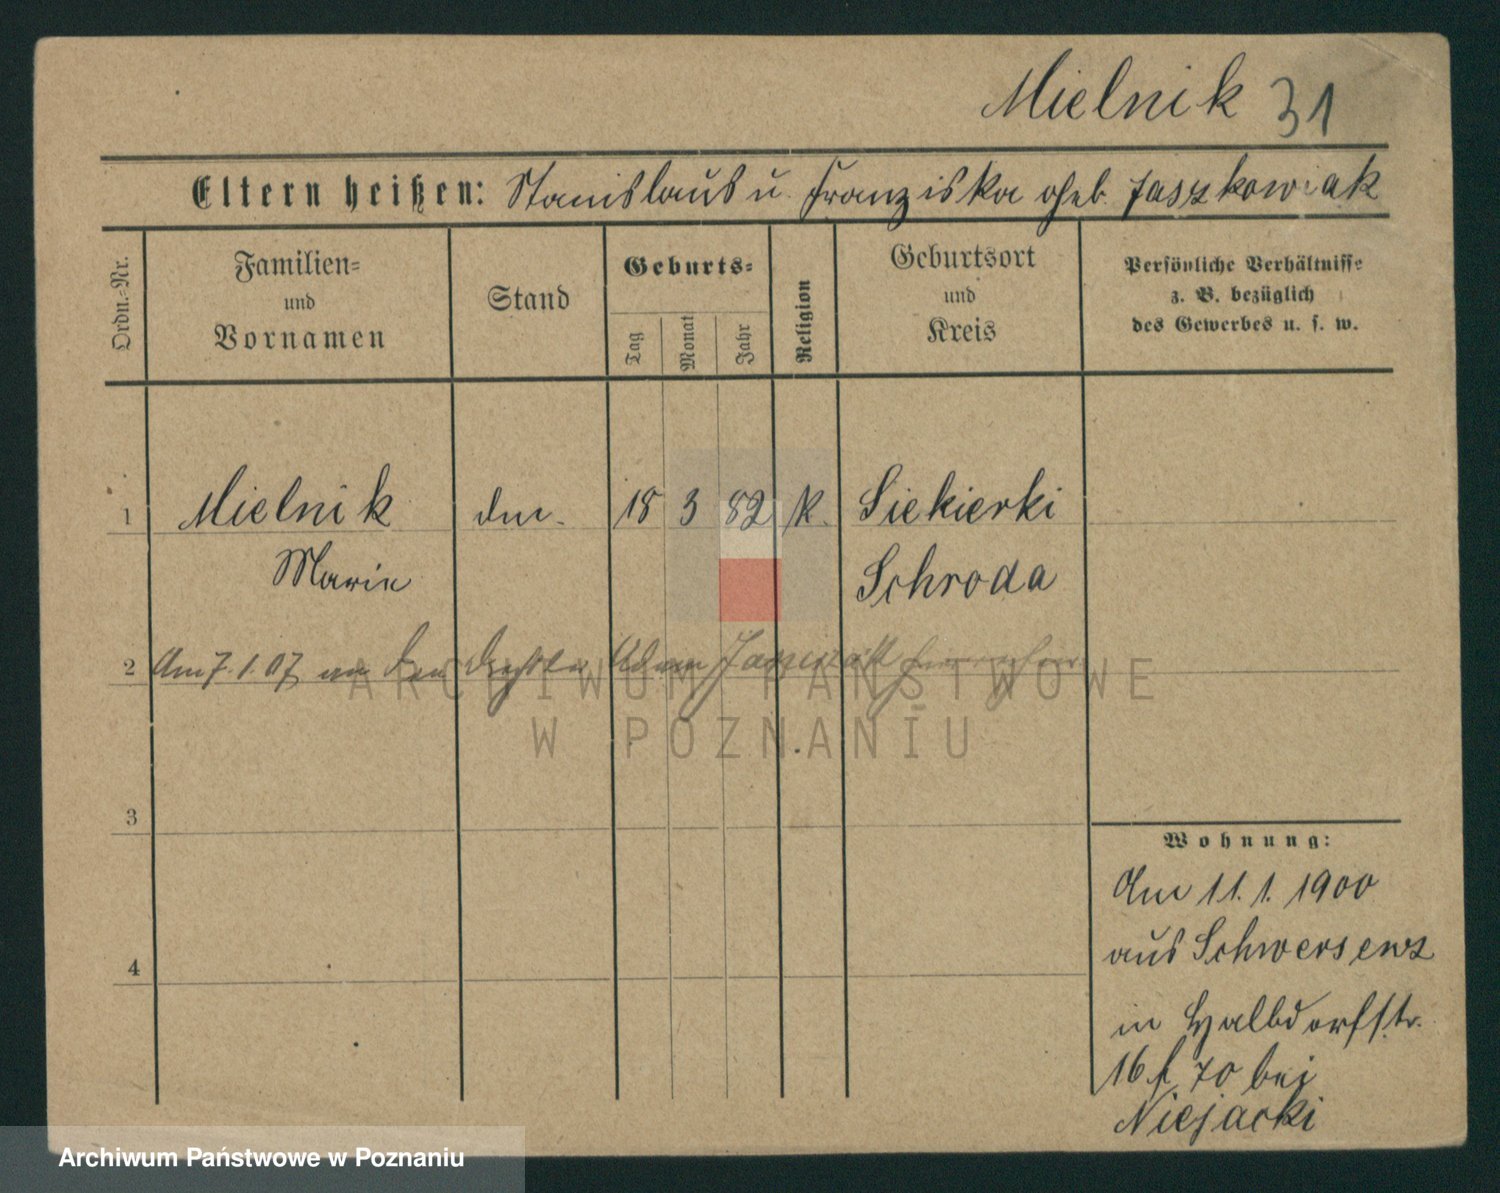 Mielnik 31
Eltern heißen: Stanislaus u. Franziska geb. Jaszkowiak
Ordn.-Nr.
Familien-
und
Vornamen
Stand
Geburts-
Tag
Monat
Jahr
Religion
Geburtsort
und
Kreis
Persönliche Verhältnisse
z. B. bezüglich
des Gewerbes u. s. w.
1 Mielnik 18 3 82 K. Siekierki
Marie Schroda
2 Am 7.1.07 an den Adam
ARCHIWUM PAŃSTWOWE
W POZNANIU
3
Wohnung:
Am 11.1.1900
aus Schwersenz
4
in Halbdorfstr.
16 f 70 bei
Niejacki
Archiwum Państwowe w Poznaniu